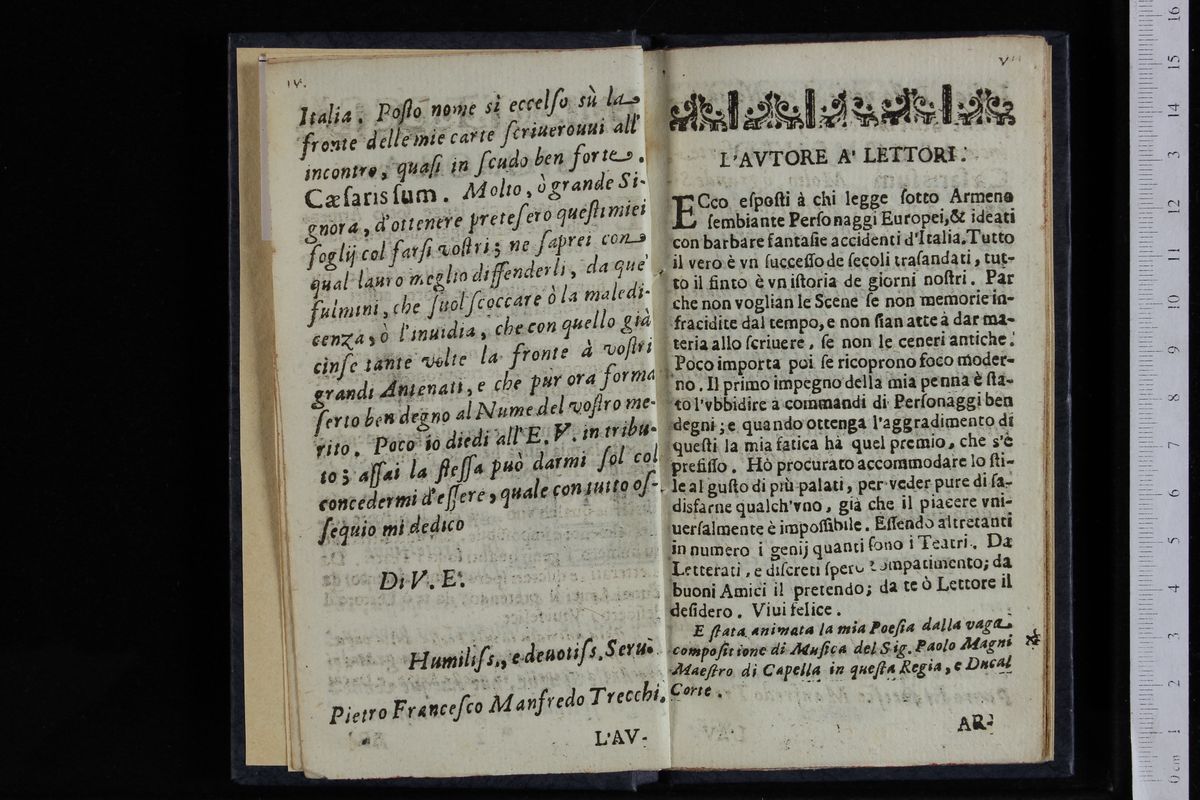 IV.
Italia. Poſto nome sì eccelſo sù la
fronte delle mie carte ſcriuerouui all'
incontro, quaſi in ſcudo ben forte.
Cæſaris ſum. Molto, ò grande Si-
gnora, d'ottenere preteſero queſti miei
foglij col farſi voſtri; ne ſaprei con
qual lauro meglio diffenderli, da que'
fulmini, che ſuol ſcoccare ò la maledi-
cenza, ò l'inuidia, che con quello già
cinſe tante volte la fronte à voſtri
grandi Antenati, e che pur ora forma
ſerto ben degno al Nume del voſtro me-
rito. Poco io diedi all'E. V. in tribu-
to; aſſai la ſteſſa può darmi ſol col
concedermi d'eſſere, quale con tutto oſ-
ſequio mi dedico
Di V. E.
Humiliſs., e deuotiſs. Seru.
Pietro Franceſco Manfredo Trecchi.
L'AV-
L'AVTORE A' LETTORI.
ECco eſpoſti à chi legge ſotto Armeno
ſembiante Perſonaggi Europei, & ideati
con barbare fantaſie accidenti d'Italia. Tutto
il vero è vn ſucceſſo de ſecoli traſandati, tut-
to il finto è vn iſtoria de giorni noſtri. Par
che non voglian le Scene ſe non memorie in-
fracidite dal tempo, e non ſian atte à dar ma-
teria allo ſcriuere, ſe non le ceneri antiche.
Poco importa poi ſe ricoprono foco moder-
no. Il primo impegno della mia penna è ſta-
to l'vbbidire a commandi di Perſonaggi ben
degni; e quando ottenga l'aggradimento di
queſti la mia fatica hà quel premio, che s'è
prefiſſo. Hò procurato accommodare lo ſti-
le al guſto di più palati, per veder pure di ſa-
disfarne qualch'vno, già che il piacere vni-
uerſalmente è impoſſibile. Eſſendo altretanti
in numero i genij quanti ſono i Teatri. Da
Letterati, e diſcreti ſpero compatimento; da
buoni Amici il pretendo; da te ò Lettore il
deſidero. Viui felice.
E ſtata animata la mia Poeſia dalla vaga
compoſitione di Muſica del Sig. Paolo Magni
Maeſtro di Capella in queſta Regia, e Ducal
Corte.
AR-
0 cm 1 2 3 4 5 6 7 8 9 10 11 12 13 14 15 16